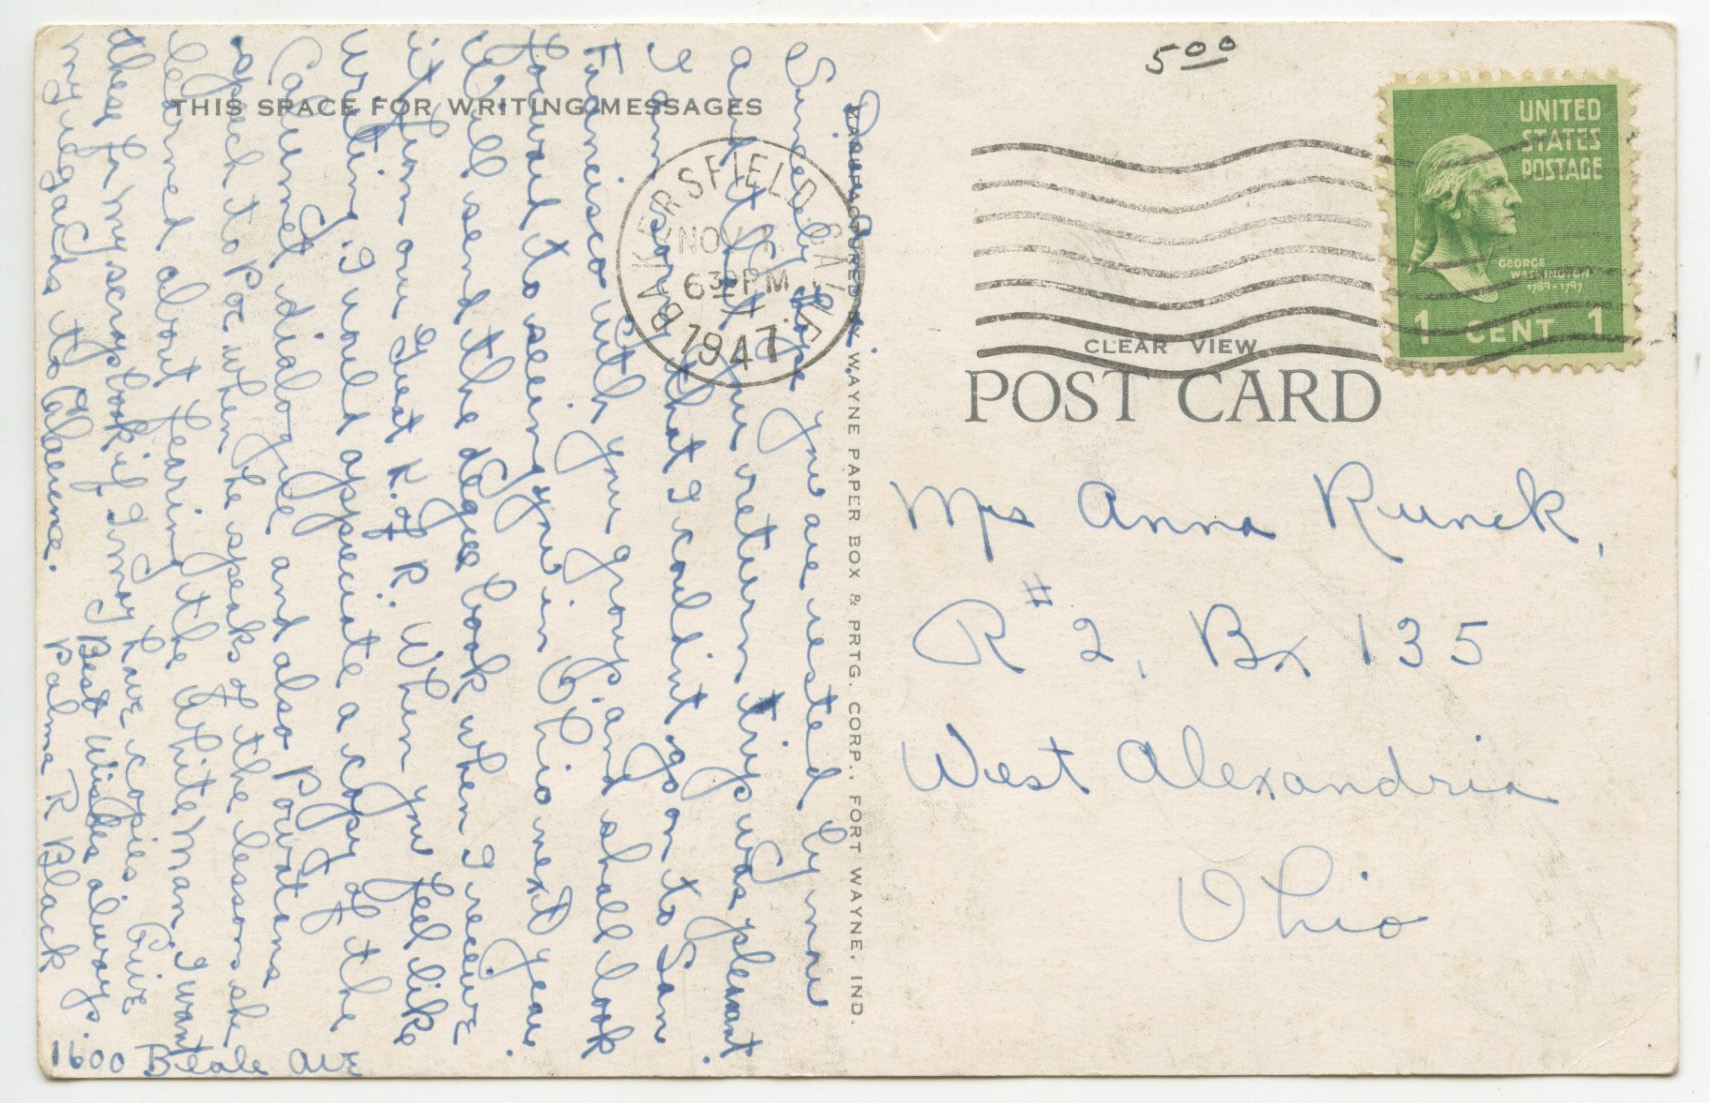 5 00
UNITED
STATES
POSTAGE
GEORGE
WASHINGTON
1789-1797
1 CENT 1
BAKERSFIELD CALIF
NOV
6 30 PM
1947
THIS SPACE FOR WRITING MESSAGES
CLEAR VIEW
POST CARD
WAYNE PAPER BOX & PRTG. CORP., FORT WAYNE, IND.
Mrs Anna Runck,
R #2, Bx 135
West Alexandria
Ohio
Sincerely hope you are rested by now
and that your return trip was pleasant.
I am sorry that I couldn't go on to San
Francisco with your group, and shall look
forward to seeing you in Ohio next year.
Will send the degree book when I receive
it from our Great K. of R. When you feel like
writing, I would appreciate a copy of the
Calumet dialogue and also Powatans
speech to Poc when he speaks of the lessons she
learned about fearing the White Man. I want
these for my scrapbook if I may have copies. Give
my regards to Clarence.
Best Wishes always.
Palma R Black
1600 Beale Ave